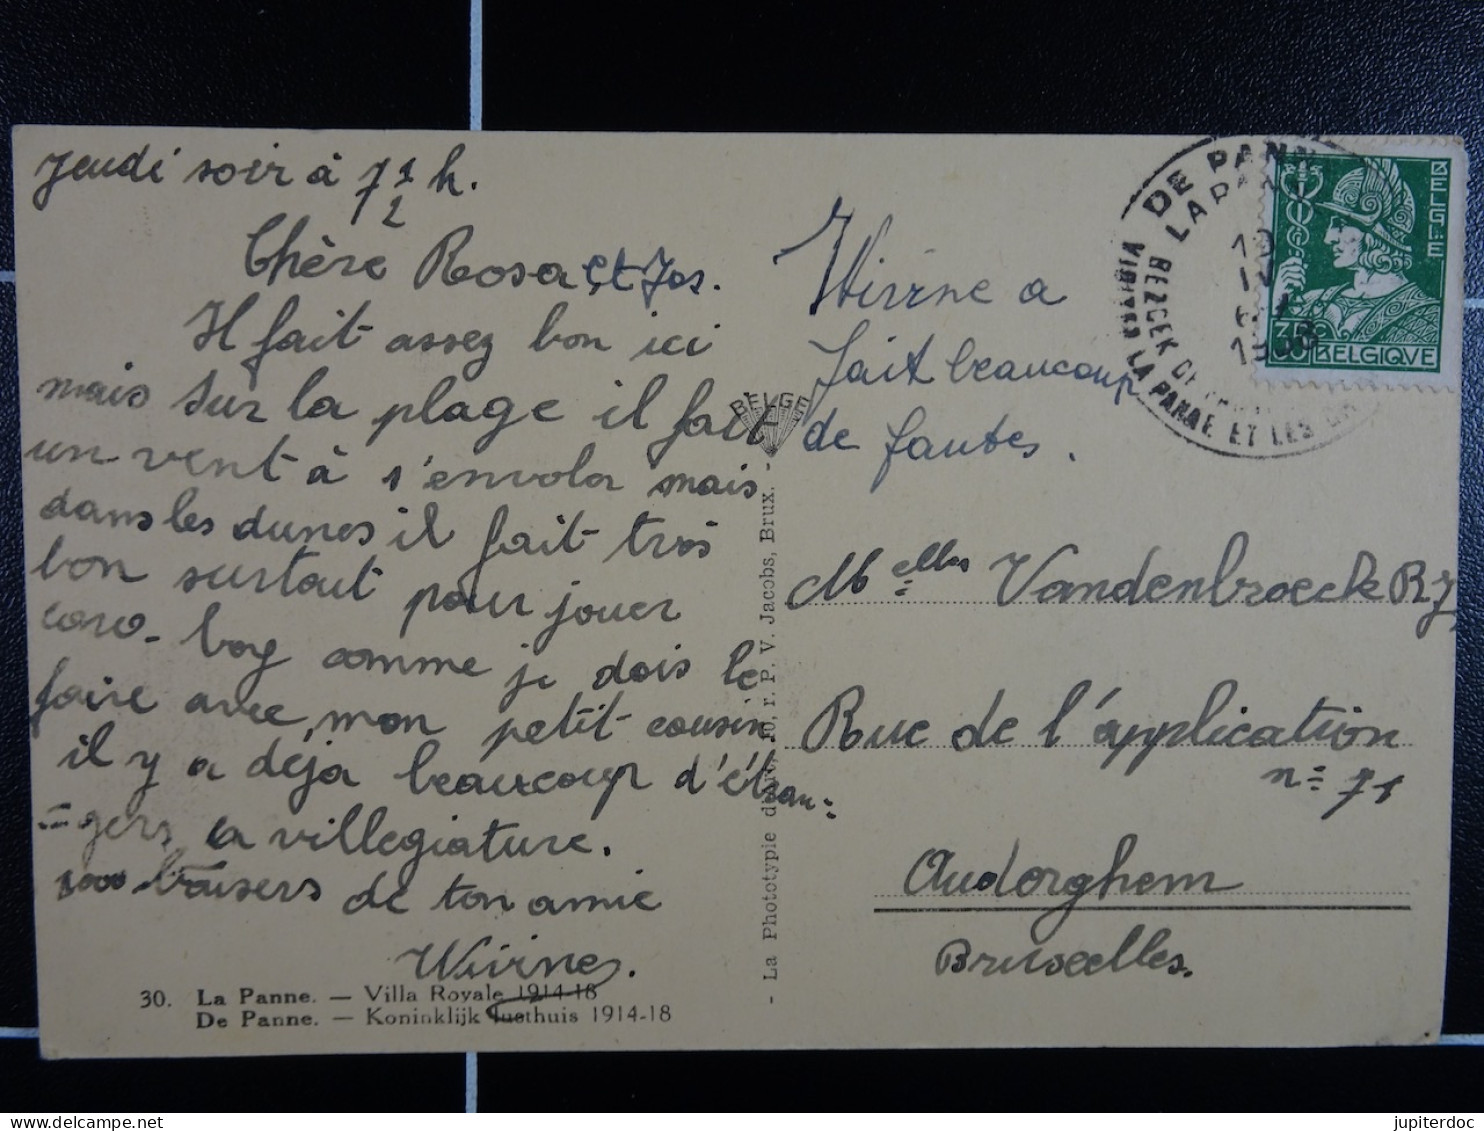 Jeudi soir à 7 1/2 h.
Chère Rosa et Jos.
Il fait assez bon ici
mais sur la plage il fait
un vent à s'envoler mais
dans les dunes il fait très
bon surtout pour jouer
caro-boy comme je dois le
faire avec mon petit cousin
il y a déjà beaucoup d'étran=
=gers, a villegiature.
1000 baisers de ton amie
Wivine.
30. La Panne. — Villa Royale 1914-18
De Panne. — Koninklijk lusthuis 1914-18
BELGE
- La Phototypie d'art, 10, r. P. V. Jacobs, Brux. -
Wivine a
fait beaucoup
de fautes.
Melles Vandenbroeck R J
Rue de l'application
n= 71
Auderghem
Bruxelles.
DE PANN
LA PANN
19
IV
1938
BEZOEK DE
LA PANNE ET LES
BELGIE
35C
BELGIQVE
jupiterdoc
delcampe.net